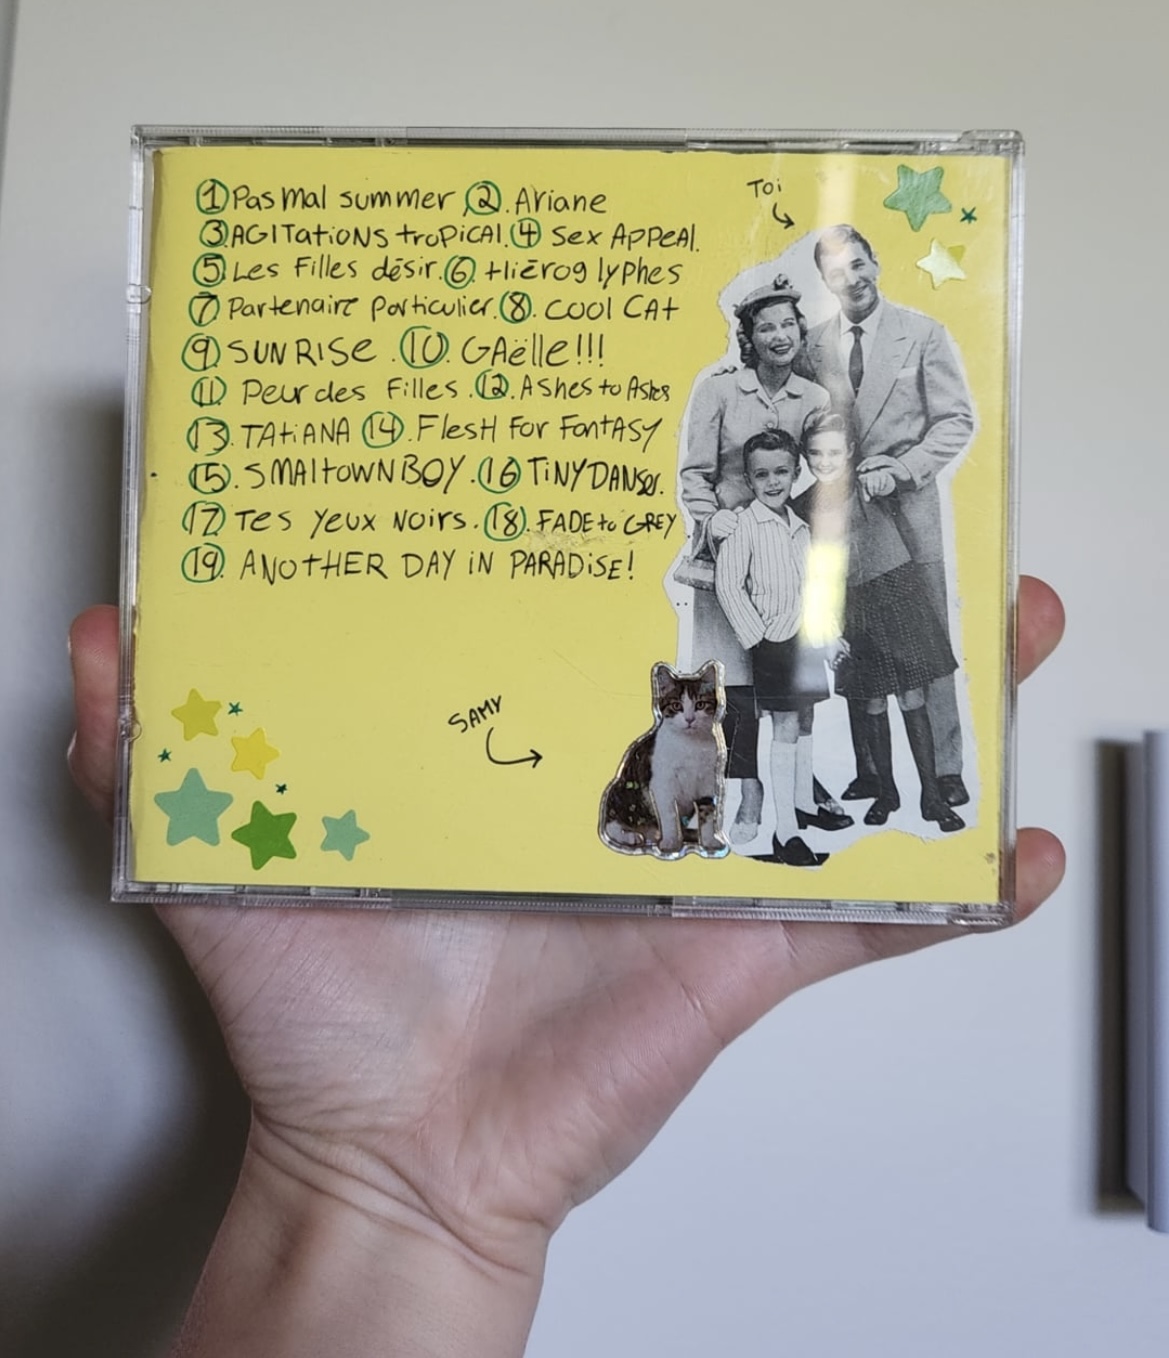 Toi
① Pas Mal summer ②. Ariane
③ AGITATIONS tROPICAL. ④ Sex APPeAL.
⑤ Les Filles désir. ⑥. Hiéroglyphes
⑦ Partenaire particulier. ⑧. COOL CAt
⑨ SUNRISE . ⑩. GAëlle!!!
⑪ Peur des Filles . ⑫. Ashes to Ashes
⑬. TAtiANA ⑭. FlesH For FantASY
⑮. SMAltOWN BOY . ⑯ TiNY DANser.
⑰ Tes Yeux Noirs. ⑱. FADE to GREY
⑲. ANOtHER DAY iN PARADiSE!
SAMY